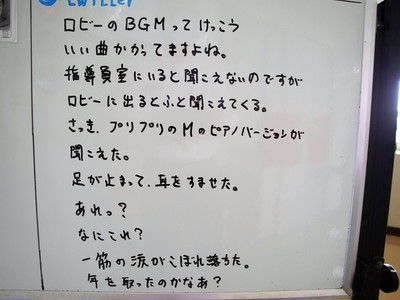 twitter
ロビーのBGMってけっこう
いい曲かかってますよね。
指導員室にいると聞こえないのですが
ロビーに出るとふと聞こえてくる。
さっき、プリプリのMのピアノバージョンが
聞こえた。
足が止まって、耳をすませた。
あれっ?
なにこれ?
一筋の涙がこぼれ落ちた。
年を取ったのかなあ?